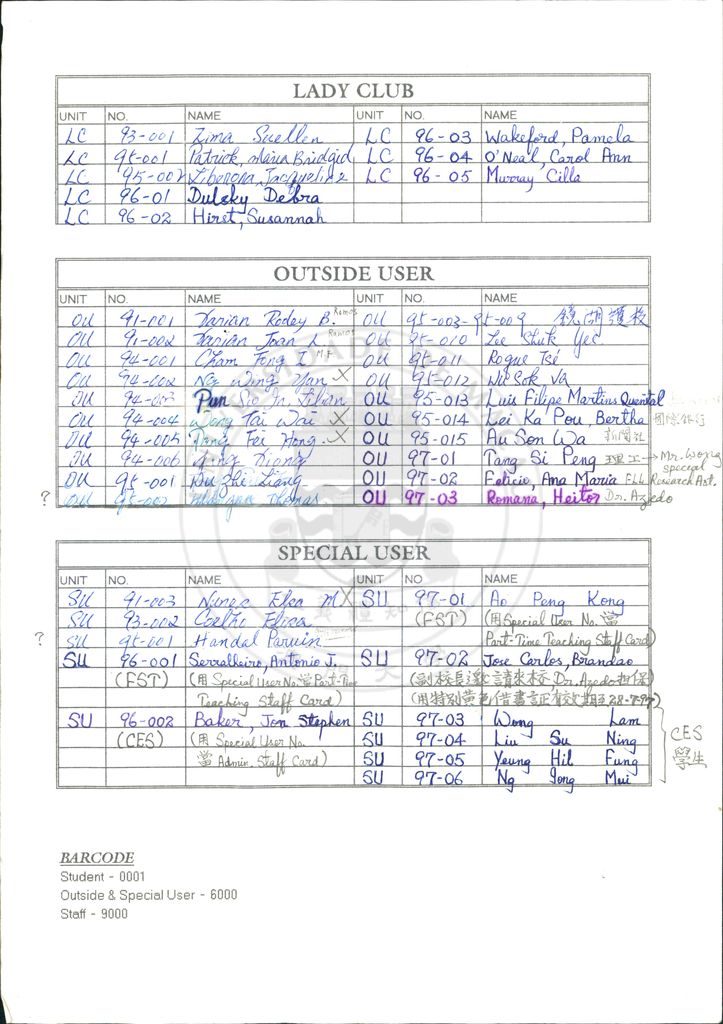 LADY CLUB
UNIT NO. NAME UNIT NO. NAME
LC 93-001 Zima Suellen LC 96-03 Wakeford, Pamela
LC 95-001 Patrick, Maria Bridgid LC 96-04 O'Neal, Carol Ann
LC 95-002 Jacqueline LC 96-05 Murray Cilla
LC 96-01 Dulsky Debra
LC 96-02 Hirst, Susannah
OUTSIDE USER
UNIT NO. NAME UNIT NO. NAME
OU 91-001 Xavian Rodey B. Ramos OU 95-003-95-009 鏡湖護校
OU 91-002 Xavian Joan L. Ramos OU 95-010 Lee Shuk Yee
OU 94-001 Cham Fong I OU 95-011 Rogue Tsé
OU 94-002 Ng Weng Yan X OU 95-012 Wu Sok Va
OU 94-003 Pun Sio In Lilian OU 95-013 Luis Filipe Martins Quental
OU 94-004 Wong Tai Wai X OU 95-014 Lei Ka Pou, Bertha 國際銀行
OU 94-005 Fei Hong X OU 95-015 Au Son Wa 新聞社
OU 94-006 OU 97-01 Tang Si Peng 理工 → Mr. Wong special
OU 95-001 Wu Zhi Liang OU 97-02 Felicio, Ana Maria Research Ast.
? OU 95-002 Thomas OU 97-03 Romana, Heitor Dr. Azedo
SPECIAL USER
UNIT NO. NAME UNIT NO NAME
SU 91-003 Nunes Elsa M. X SU 97-01 Ao Peng Kong
SU 93-002 Coelho Elisa (FST) (用 Special User No. 當
? SU 95-001 Handal Parwin Part-Time Teaching Staff Card)
SU 96-001 Serralheiro, Antonio J. SU 97-02 Jose Carlos, Brandao
(FST) (用 Special User No. 當 Part-Time (副校長邀請來校 Dr. Azedo 担保)
Teaching Staff Card) (用特別黃色借書証有效期至 28-7-97)
SU 96-002 Baker, Jon Stephen SU 97-03 Wong Lam
(CES) (用 Special User No. SU 97-04 Liu Su Ning CES
當 Admin. Staff Card) SU 97-05 Yeung Hil Fung 學生
SU 97-06 Ng Iong Mui
BARCODE
Student - 0001
Outside & Special User - 6000
Staff - 9000